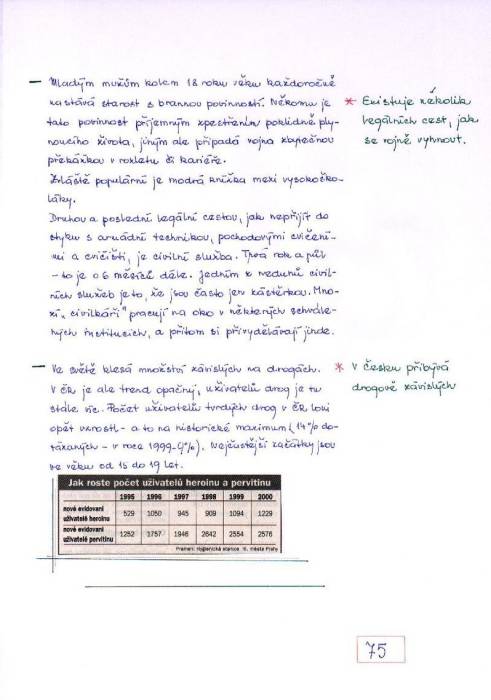 – Mladým mužům kolem 18 roku věku každoročně
nastává starost s brannou povinností. Někomu je
tato povinnost příjemným zpestřením poklidně ply-
noucího života, jiným ale připadá vojna zbytečnou
překážkou v rozletu či kariéře.
Zvláště populární je modrá knížka mezi vysokoško-
láky.
Druhou a poslední legální cestou, jak nepřijít do
styku s armádní technikou, pochodovými cvičení-
mi a cvičišti, je civilní služba. Trvá rok a půl
– to je o 6 měsíců déle. Jedním z neduhů civil-
ních služeb je to, že jsou často jen zástěrkou. Mno-
zí "civilkáři" pracují na oko v některých schvále-
ných institucích, a přitom si přivydělávají jinde.
* Existuje několik
legálních cest, jak
se vojně vyhnout.
– Ve světě klesá množství závislých na drogách.
V ČR je ale trend opačný, uživatelů drog je tu
stále víc. Počet uživatelů tvrdých drog v ČR loni
opět vzrostl – a to na historické maximum (14% do-
tázaných – v roce 1999 - %). Nejčastější začátky jsou
ve věku od 15 do 19 let.
* V Česku přibývá
drogově závislých
Jak roste počet uživatelů heroinu a pervitinu
1995 1996 1997 1998 1999 2000
nově evidovaní
uživatelé heroinu 529 1050 945 909 1094 1229
nově evidovaní
uživatelé pervitinu 1252 1757 1946 2642 2554 2576
Pramen: Hygienická stanice hl. města Prahy
75